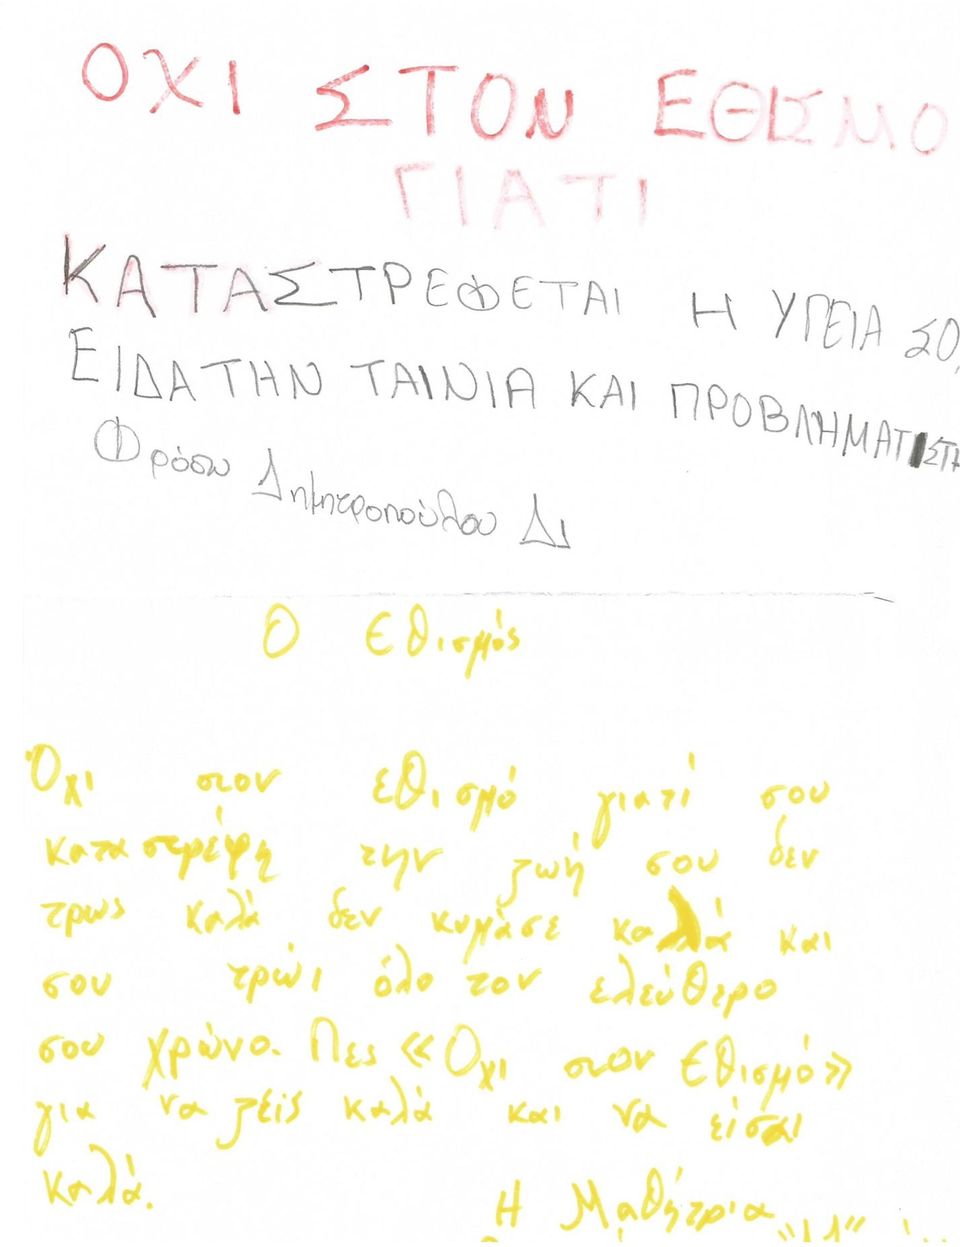 ΟΧΙ ΣΤΟΝ ΕΘΙΣΜΟ
ΓΙΑΤΙ
ΚΑΤΑΣΤΡΕΦΕΤΑΙ Η ΥΓΕΙΑ ΣΟ
ΕΙΔΑ ΤΗΝ ΤΑΙΝΙΑ ΚΑΙ ΠΡΟΒΛΗΜΑΤΙΣΤΗ
Φρόσω Δημητροπούλου Δ1
Ο Εθισμός
Όχι στον εθισμό γιατί σου
καταστρέφη την ζωή σου δεν
τρως καλά δεν κυμάσε καλά και
σου τρώι όλο τον ελεύθερο
σου χρώνο. Πες «Όχι στον Εθισμό»
για να ζείς καλά και να είσαι
καλά.
Η Μαθήτρια